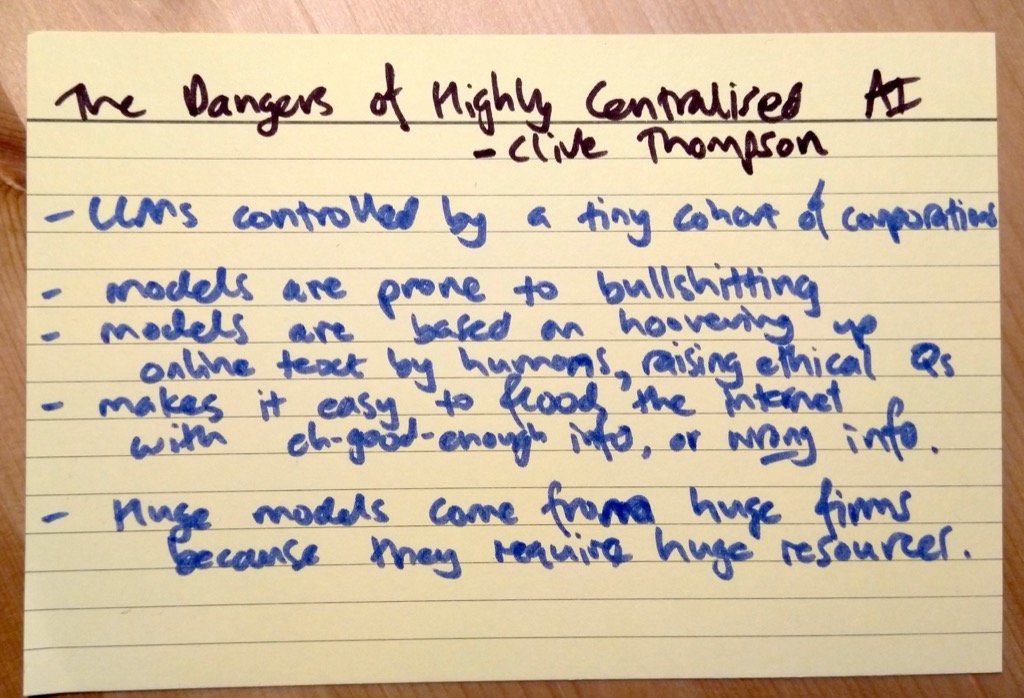 The Dangers of Highly Centralised AI
- Clive Thompson
- LLMs controlled by a tiny cohort of corporations
- models are prone to bullshitting
- models are based on hoovering up
online text by humans, raising ethical Qs
- makes it easy to flood the internet
with eh-good-enough info, or wrong info.
- Huge models come from huge firms
because they require huge resources.